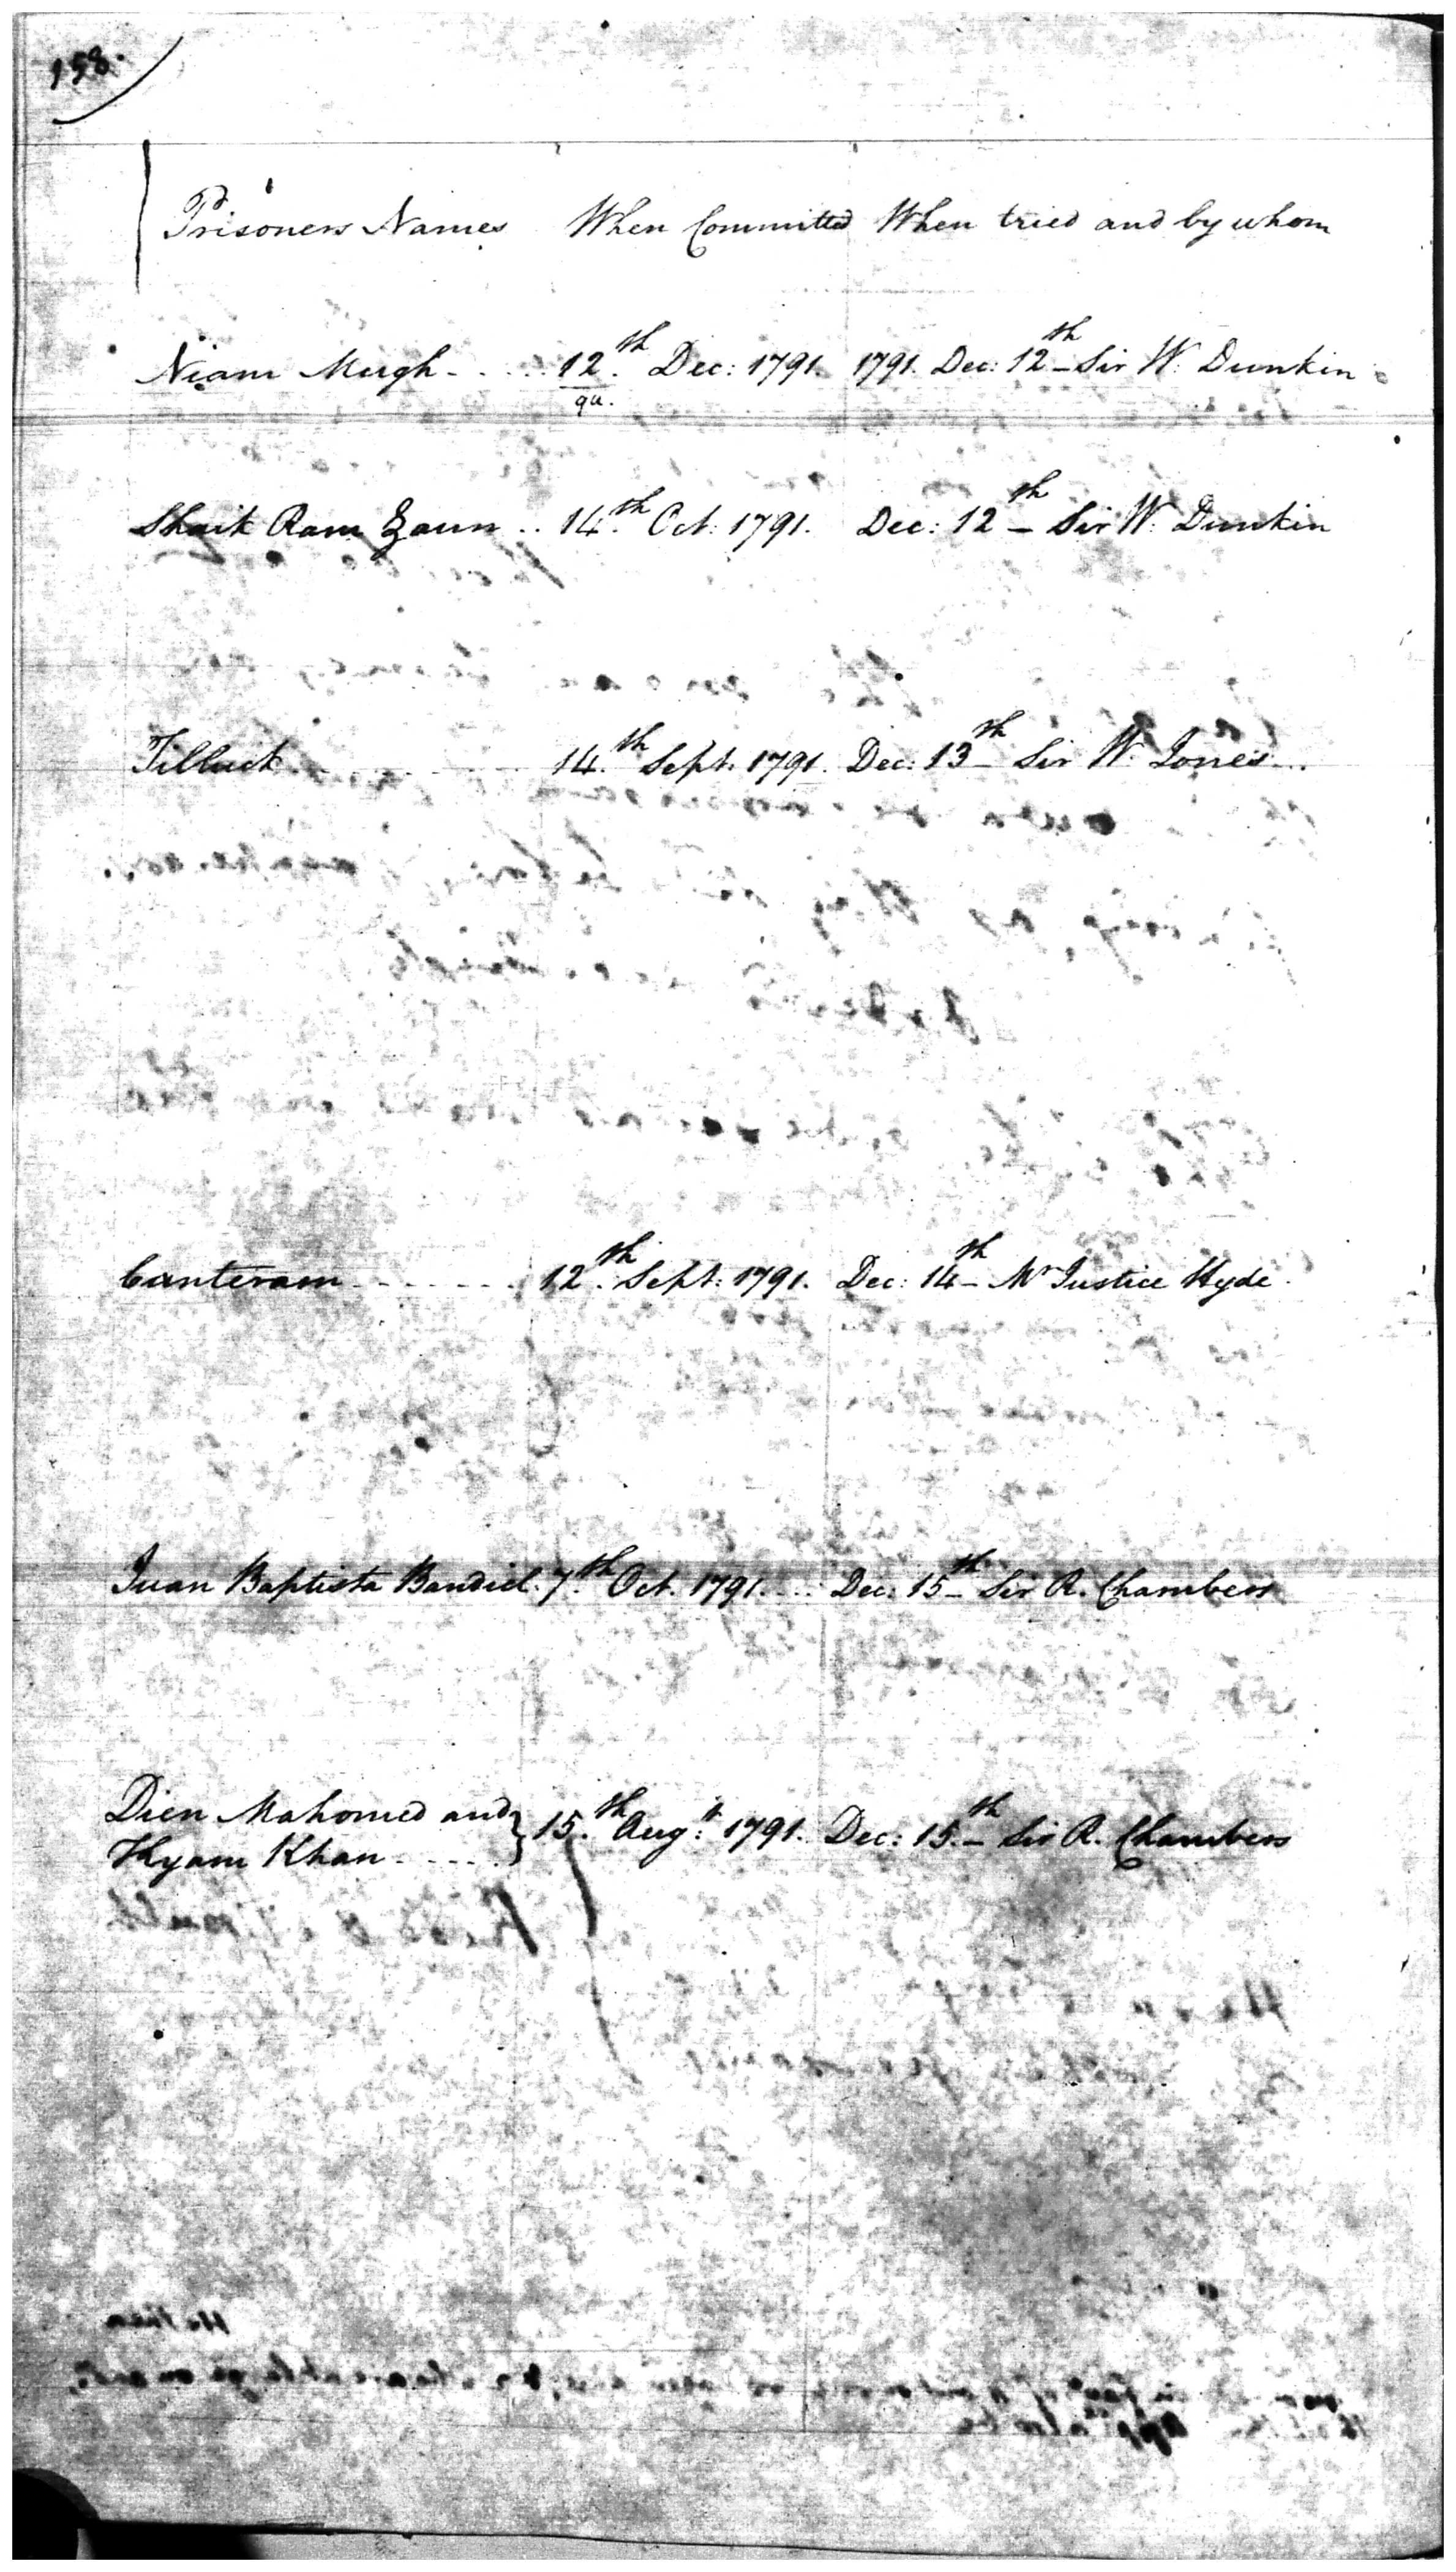 158.
Prisoners Names When Committed When tried and by whom
Niam Mugh - - - - - 12.th Dec: 1791. 1791. Dec: 12th - Sir W. Dunkin
qu.
Shaik Ram Zaun . . 14.th Oct: 1791. Dec: 12th - Sir W. Dunkin
Tilluck - - - - - - - - 14.th Sept. 1791. Dec: 13th - Sir W. Jones - - .
Canteram - - - - - - - 12.th Sept: 1791. Dec: 14th - Mr Justice Hyde.
Juan Baptista Bandiel. 7.th Oct. 1791. - - - Dec: 15th - Sir R. Chambers
Dien Mahomed and
Hyam Khan - - - - - } 15.th Aug:t 1791. Dec: 15.th - Sir R. Chambers